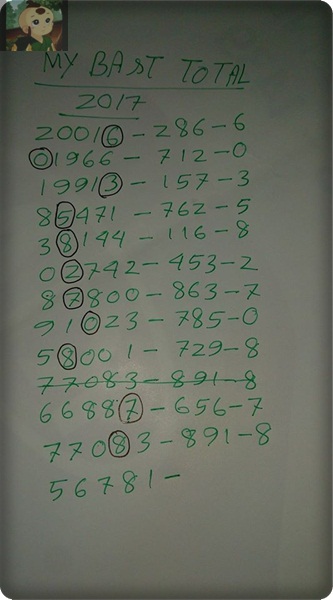 MY BAST TOTAL
2017
20016 - 286 - 6
01966 - 712 - 0
19913 - 157 - 3
85471 - 762 - 5
38144 - 116 - 8
02742 - 453 - 2
87800 - 863 - 7
91023 - 785 - 0
58001 - 729 - 8
77083 - 891 - 8
66887 - 656 - 7
77083 - 891 - 8
56781 -